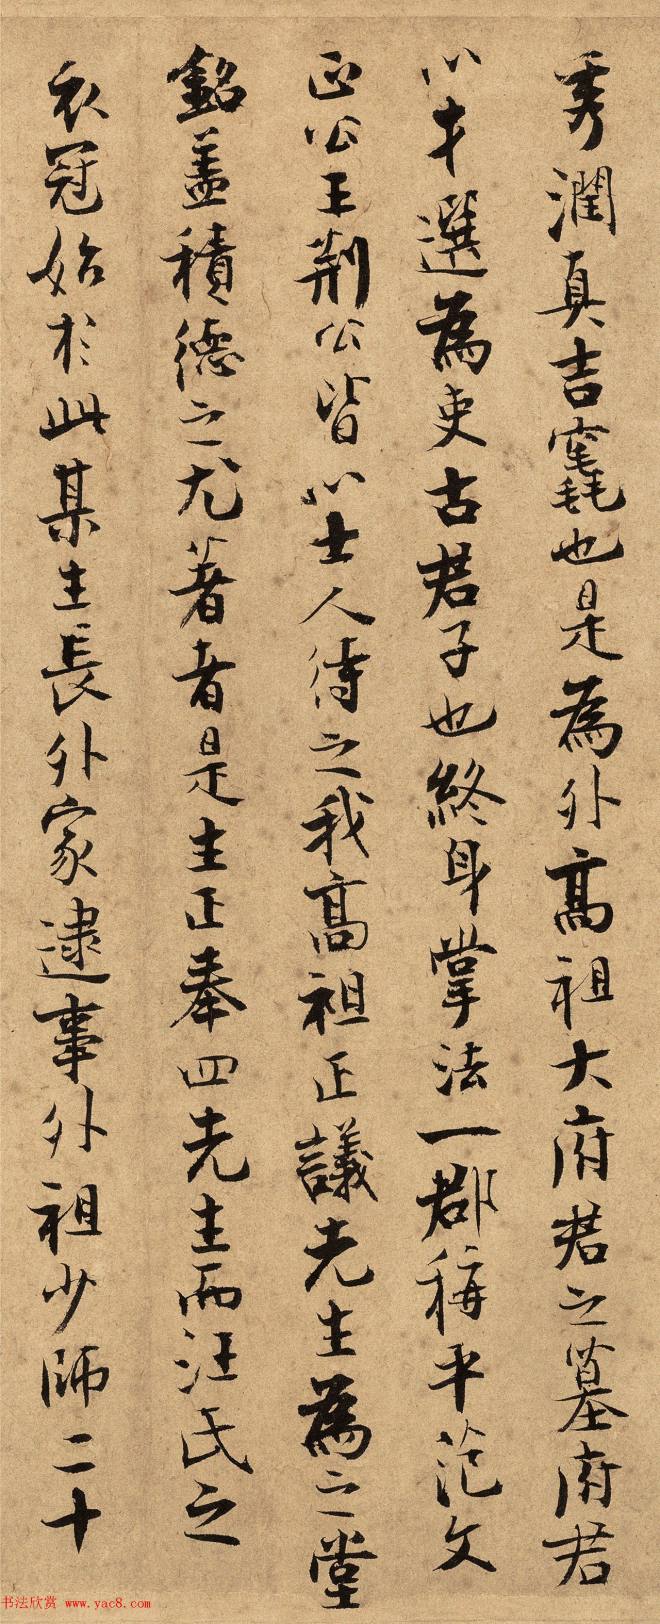 秀潤真吉竁也是為外高祖大府君之墓府君
以才選為吏古君子也終身掌法一郡稱平范文
正公王荆公皆以士人待之我高祖正議先生為之堂
銘蓋積德之尤著者是生正奉四先生而汪氏之
衣冠始於此某生長外家逮事外祖少師二十
书法欣赏 www.yac8.com